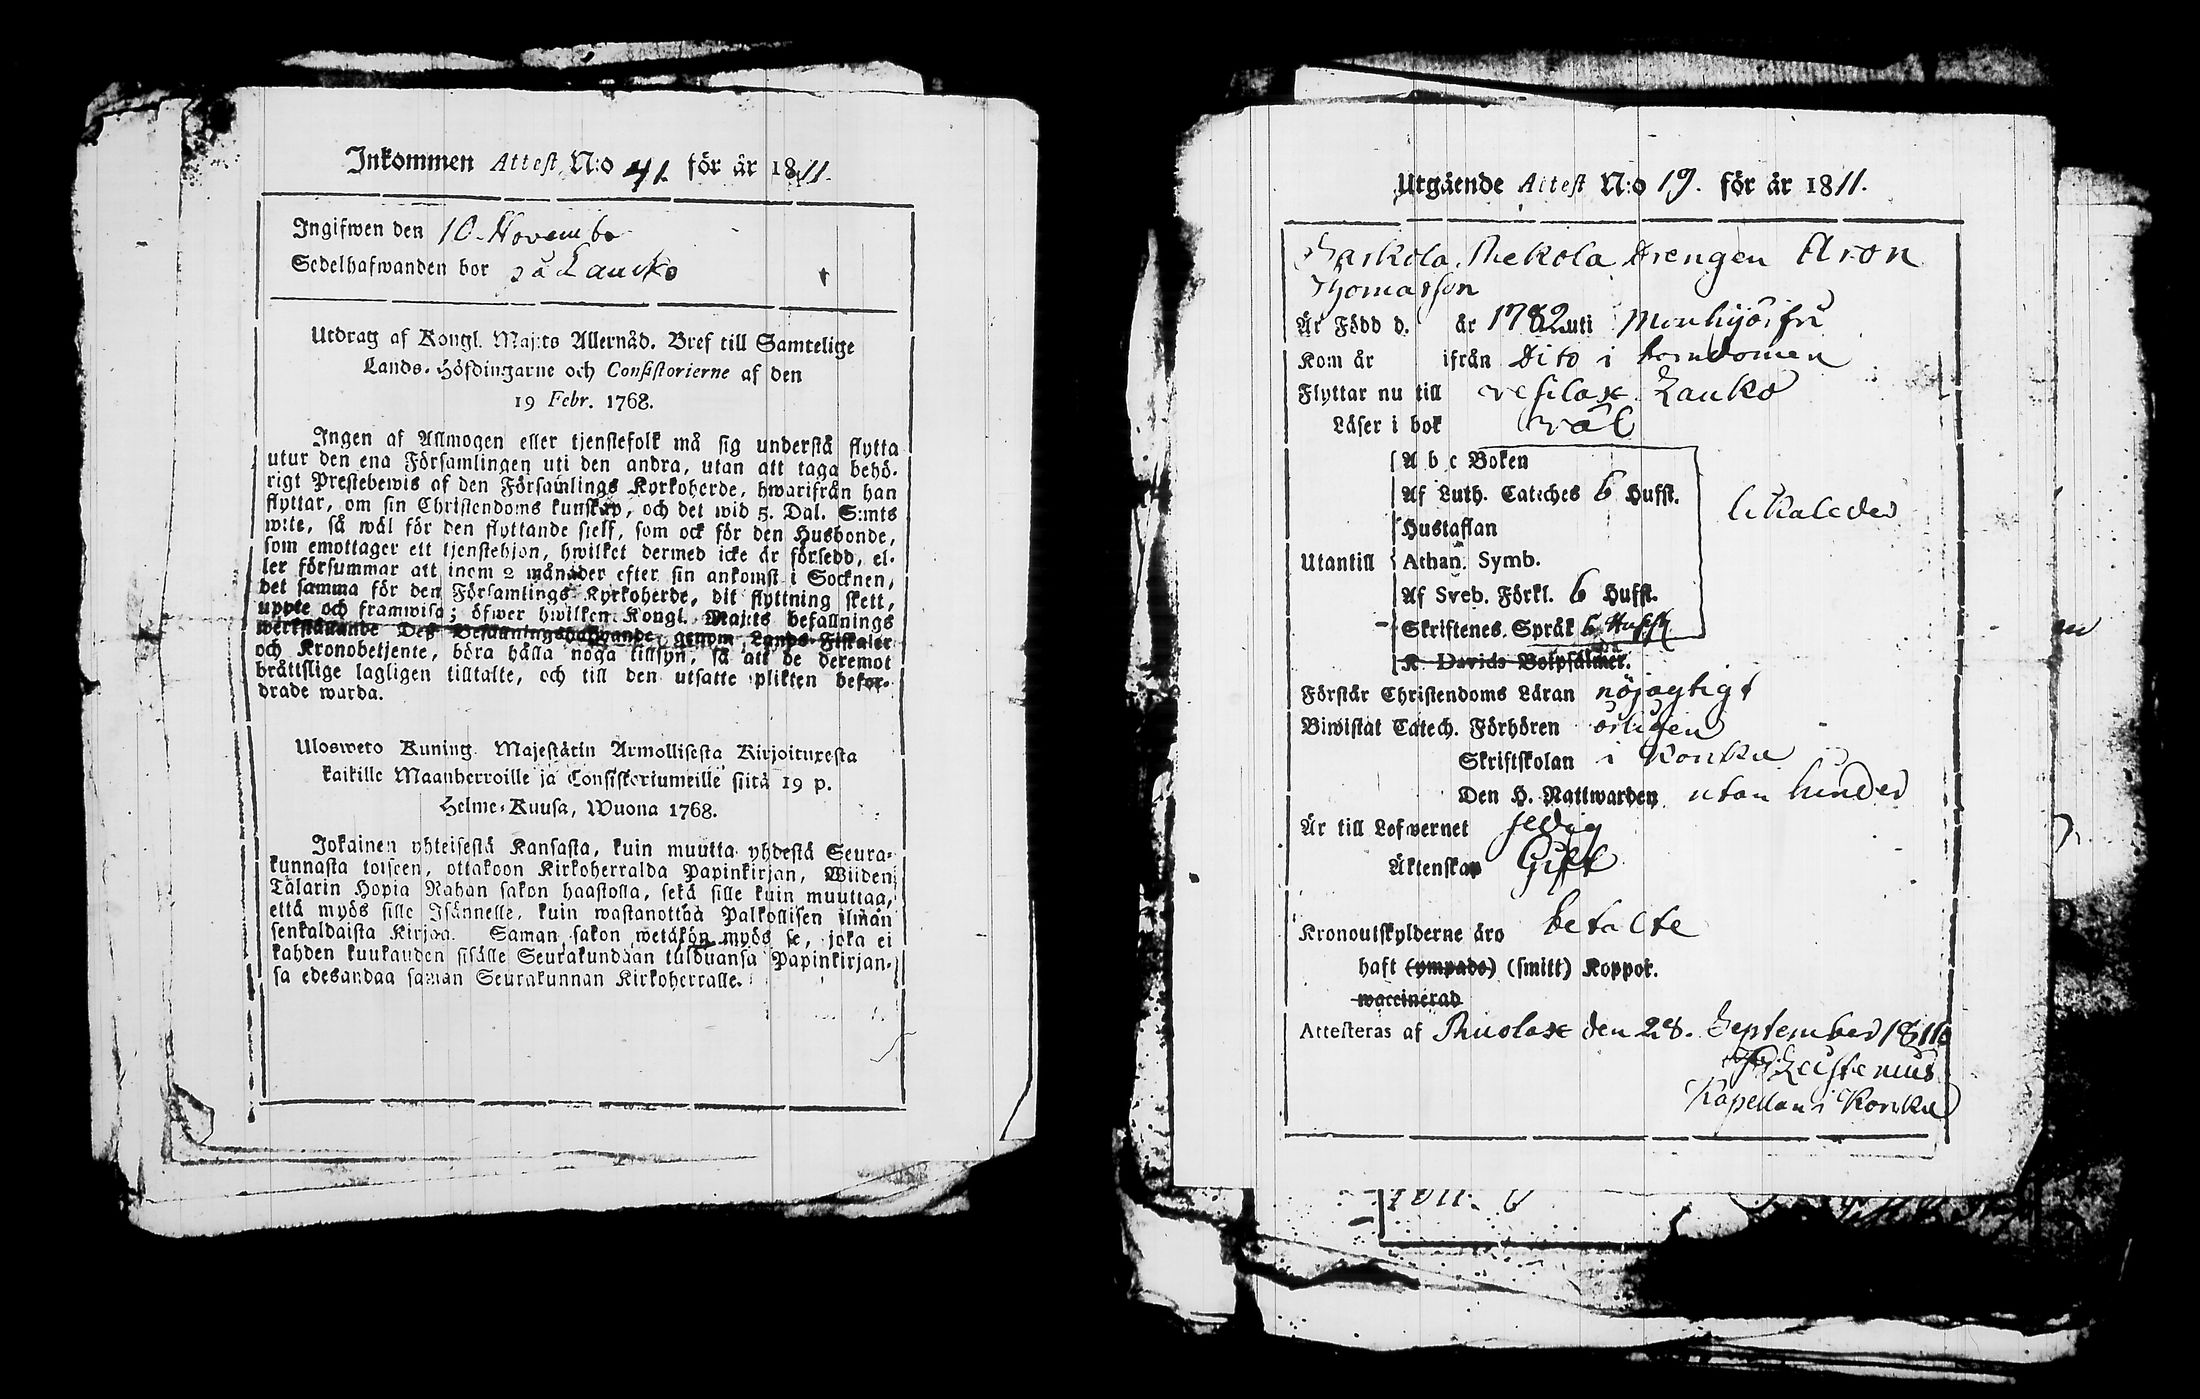 Inkommen Attest, N:o 41. för år 1811.
Ingifwen den 10. Novembr
Sedelhafwanden bor på Lauko
Utdrag af Kongl. Maj:ts Allernåd. Bref till Samtelige
Lands-Höfdingarne och Consistorierne af den
19 Febr. 1768.
Ingen af Allmogen eller tjenstefolk må sig understå flytta
utur den ena Församlingen uti den andra, utan att taga behö-
rigt Prestebewis af den Församlings Kyrkoherde, hwarifrån han
flyttar, om sin Christendoms kunskap, och det wid 5. Dal. S:mts
wite, så wäl för den flyttande sielf, som ock för den Husbonde,
som emottager ett tjenstehjon, hwilket dermed icke är försedd, el-
ler försummar att inom 2 månader efter sin ankomst i Socknen,
det samma för den Församlings Kyrkoherde, dit flyttning skett,
uppte och framwisa; öfwer hwilken Kongl. Maj:ts befallnings
werkställande Deß Befallningshafwande, genom Lands-Fiskaler
och Kronobetjente, böra hålla noga tillsyn, så att de deremot
bråttslige lagligen tilltalte, och till den utsatte plikten befor-
drade warda.
Ulosweto Kuning. Majestätin Armollisesta Kirjoituxesta
kaikille Maanherroille ja Consistoriumeille siitä 19 p.
Helme-Kuusa, Wuona 1768.
Jokainen yhteisestä Kansasta, kuin muutta yhdestä Seura-
kunnasta toiseen, ottakoon Kirkoherralda Papinkirjan, Wiiden
Talarin Hopia Rahan sakon haastolla, sekä sille kuin muuttaa,
että myös sille Isännelle, kuin wastanottaa Palkollisen ilman
senkaldaista Kirjaa. Saman sakon wetäkön myös se, joka ei
kahden kuukauden sisälle Seurakundaan tulduansa Papinkirjan-
sa edesandaa saman Seurakunnan Kirkoherralle.
Utgående Attest N:o 19. för år 1811.
Rekola Drengen Aron
Thomasson
Är Född d. år 1782 uti Mouhijärfvi
Kom år ifrån Dito i barndomen
Flyttar nu till Vesilax Lauko
Läser i bok väl
A b c Boken
Af Luth. Cateches 6 Hufst.
Hustaflan
Utantill Athan. Symb.
Af Sveb. Förkl. 6 Hufst.
Skriftenes Språk 6 Hufst
K Davids Botpsalmer.
likaledes
Förstår Christendoms Läran nöjagtigt
Biwistat Catech. Förhören årligen
Skriftskolan i Korku
Den H. Nattwarden utan hinder
Är till Lefwernet sedig
Äktenskap Gift
Kronoutskylderne äro betalte
haft (ympade) (smitt) Koppor.
waccinerad
Attesteras af Suolax den 28. September 1811
Leistenius
Kapellan i Korku